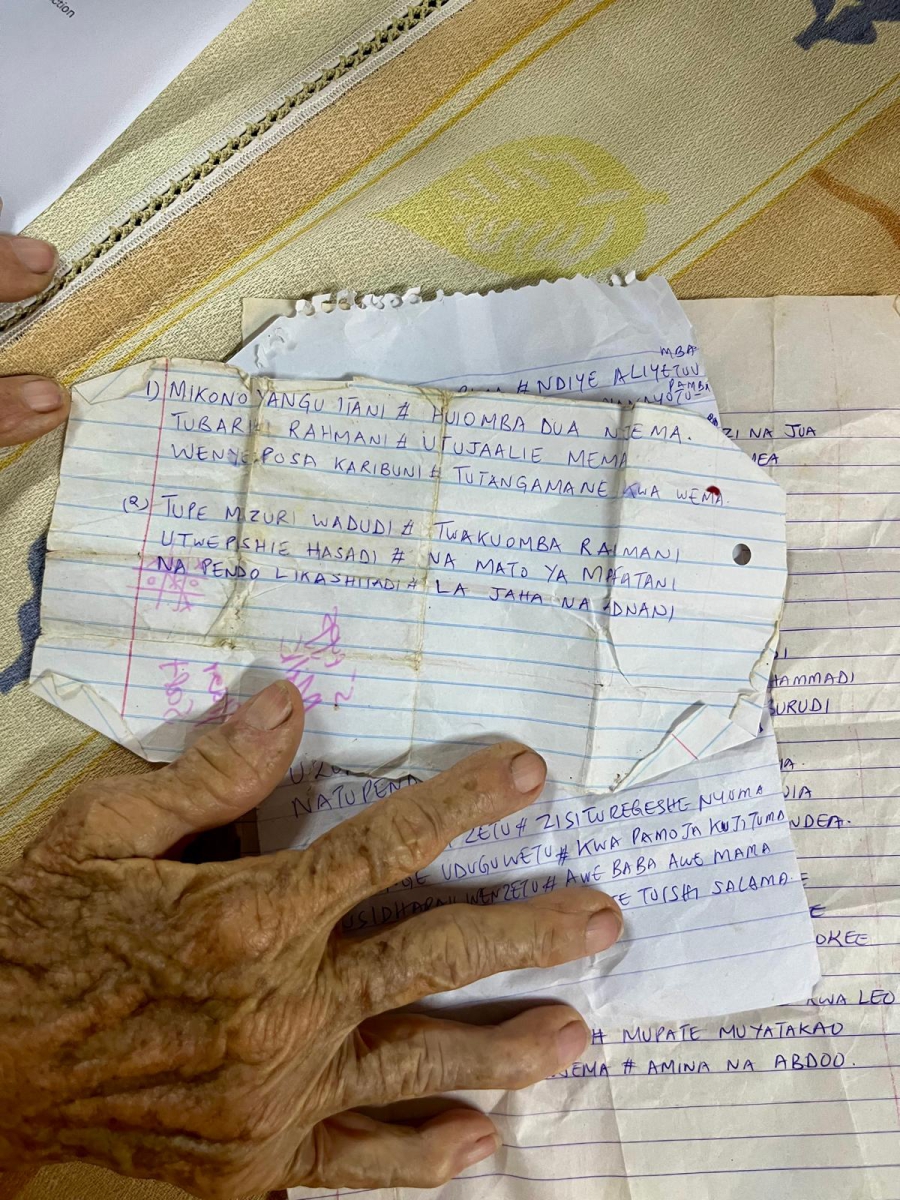 ction
MBA
# NDIYE ALIYETUU
PAMBA
1) MIKONO YANGU ITANI # HUIOMBA DUA NJEMA.
TUBARIKI RAHMANI # UTUJAALIE MEMA
WENYE POSA KARIBUNI # TUTANGAMANE KWA WEMA.
(2) TUPE MZURI WADUDI # TWAKUOMBA RAHMANI
UTWEPSHIE HASADI # NA MATO YA MAFATANI
NA PENDO LIKASHITADI # LA JAHA NA ADNANI
ZI NA JUA
MEA
HAMMADI
BURUDI
IA.
DIA
NDEA.
NATUPENA
ZETU # ZISITUREGESHE NYUMA
UDUGU WETU # KWA PAMOJA KUJITUMA
WENZETU # AWE BABA AWE MAMA
TUISHI SALAMA.
E
OKEE
KWA LEO
# MUPATE MUYATAKAO
JEMA # AMINA NA ABDOO.